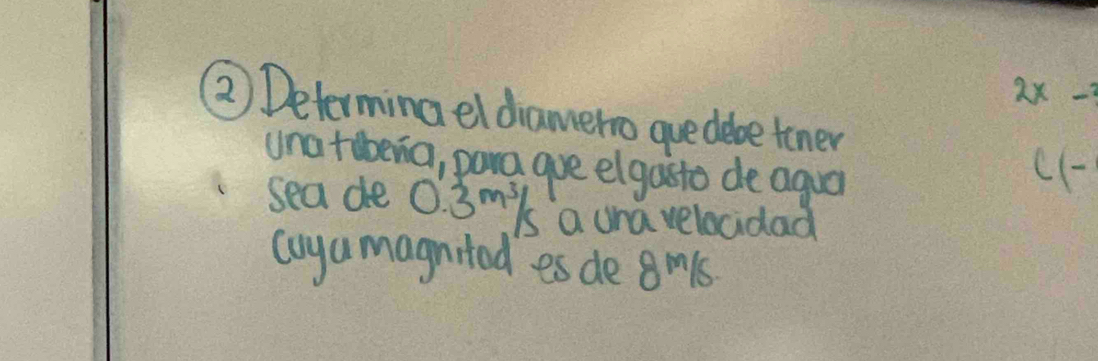 ② Determina el diametro que debe tener
una tubería, para que el gasto de agua
sea de 0.3 m³/s a una velocidad
cuya magnitud es de 8 m/s.
2x -
C(-